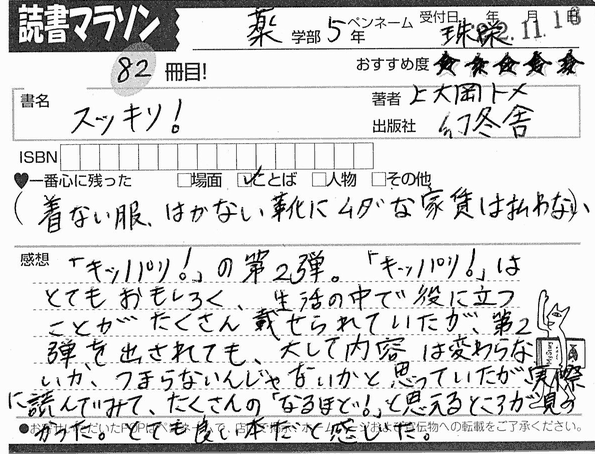 読書マラソン
薬 学部 5 年
ペンネーム 珠栄
受付日 年 月 日
2.11.16
82 冊目!
おすすめ度 ★★★★★
書名 スッキリ!
著者 上大岡トメ
出版社 幻冬舎
ISBN
♥一番心に残った □場面 ☑ことば □人物 □その他
(着ない服、はかない靴にムダな家賃は払わない)
感想
「キッパリ!」の第2弾。「キッパリ!」は
とてもおもしろく、生活の中で役に立つ
ことがたくさん載せられていたが、第2
弾を出されても、大して内容は変わらな
いか、つまらないんじゃないかと思っていたが、実際
に読んでみて、たくさんの「なるほど!」と思えるところが見つ
かった。とても良い本だと感じた。